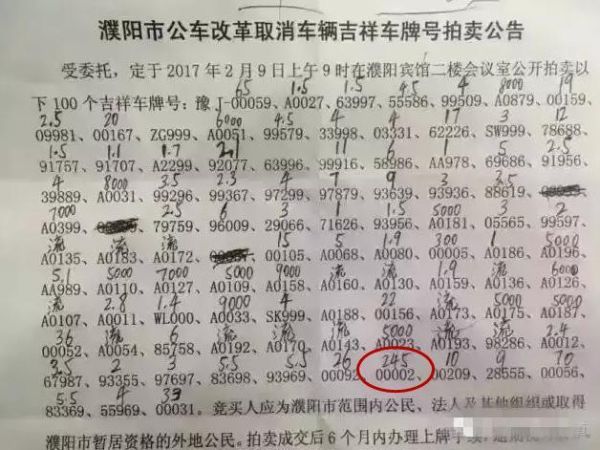 濮阳市公车改革取消车辆吉祥车牌号拍卖公告
受委托，定于2017年2月9日上午9时在濮阳宾馆二楼会议室公开拍卖以
65 1.5 4.5 4 8000 19
下100个吉祥车牌号：豫J-00059、A0027、63997、55586、99509、A0879、00159、
2.5 20 6000 4.5 4 4 17 3 12
09981、00167、ZG999、A0051、99579、33998、03331、62226、SW999、78688、
1.5 1.1 1.7 2.1 11 6 1 5 2.5
91757、91707、A2299、92077、63996、99916、58986、AA978、69686、91956、
4 8000 3.5 2.3 4 7 9 3 3.5
39889、A0031、99296、99367、97299、97879、93639、93936、88619、
7000 2.5 6 3 1 1.5 5000 3 2
A0399、79759、96009、29066、71626、93956、A0181、05565、99597、
流 流 流 15 5 1.9 300 1 5000
A0135、A0183、A0172、00105、A0068、A0080、00005、A0186、A0196、
5.1 5000 7000 5000 9000 流 流 1.9 流 6000
AA989、A0110、A0127、A0109、A0158、A0160、A0130、A0159、A0136、A0126、
流 2.8 1.4 9000 4 流 22 流 5000 5000
A0107、A0011、WL000、A0033、SK999、A0188、00156、A0173、A0175、A0187、
36 流 6 流 流 流 5000 流 流 2.4
00052、A0054、85758、A0192、A0170、A0143、A0023、A0193、98286、A0012、
3.5 2 3 5.5 5.5 26 245 10 9 70
67987、93355、97697、83698、93969、00092、00002、00209、28555、00056、
5.5 4 39
83369、55969、00031。竞买人应为濮阳市范围内公民，法人及其他组织或取得
濮阳市暂居资格的外地公民。拍卖成交后6个月内办理上牌手续，